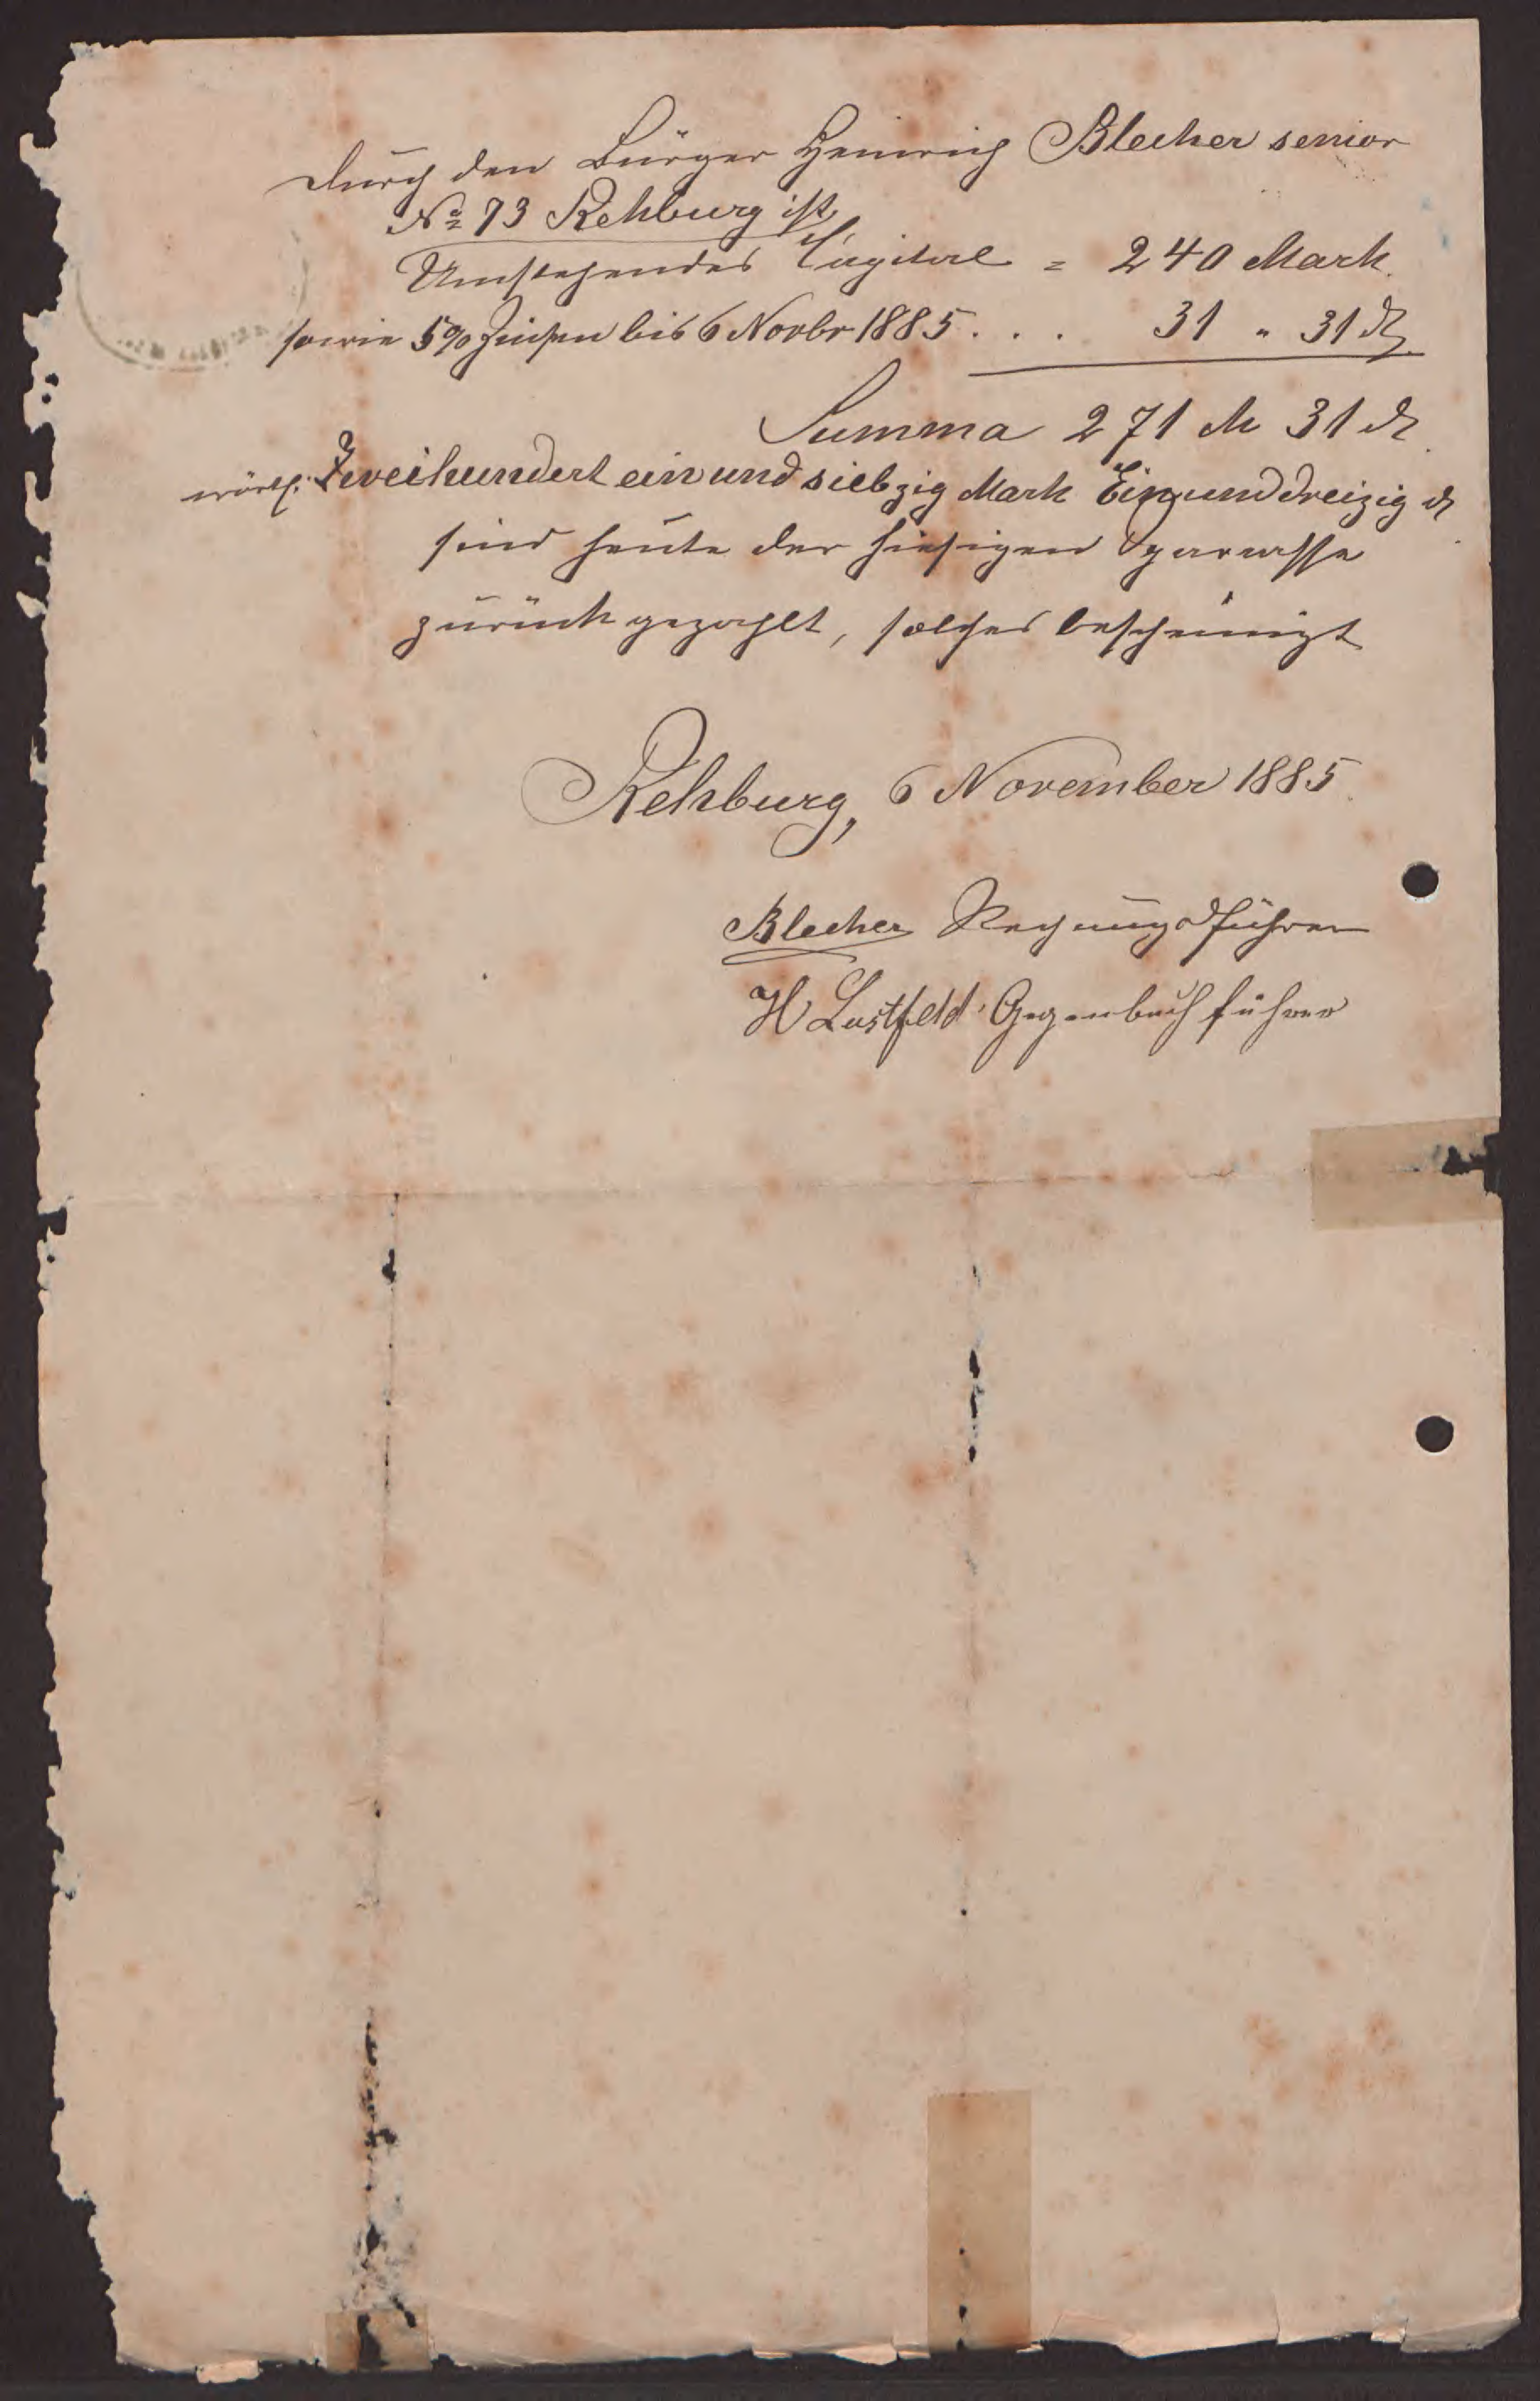 Durch den Bürger Heinrich Blecher senior
No 73 Rehburg ist
Umstehendes Capital = 240 Mark.
sowie 5% Zinsen bis 6 Novbr 1885 . . . 31 " 31 ₰
Summa 271 M 31 ₰
wörtl: Zweihundert ein und siebzig Mark Ein und dreizig ₰
sind heute der hiesigen Sparcasse
zurück gezahlt, solches bescheinigt
Rehburg, 6 November 1885.
Blecher Rechnungsführer
H Lustfeld Gegenbuchführer